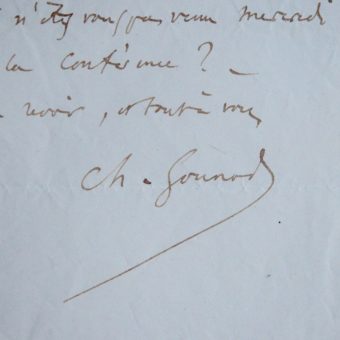 n'êtes vous pas venu mercredi
la Conférence ? _
revoir, et tout à vous
Ch. Gounod